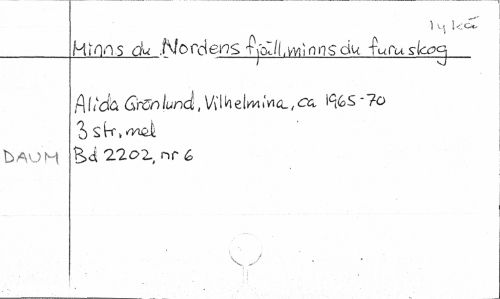 lyckå
Minns du Nordens fjäll, minns du furuskog
Alida Grönlund, Vilhelmina, ca 1965-70
3 str, mel
DAUM Bd 2202, nr 6